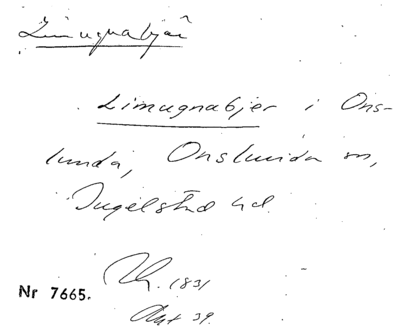 Limugnabjär
Limugnabjer i Ons-
lunda, Onslunda sn,
Ingelstad hd.
1831
Akt 39.
Nr 7665.